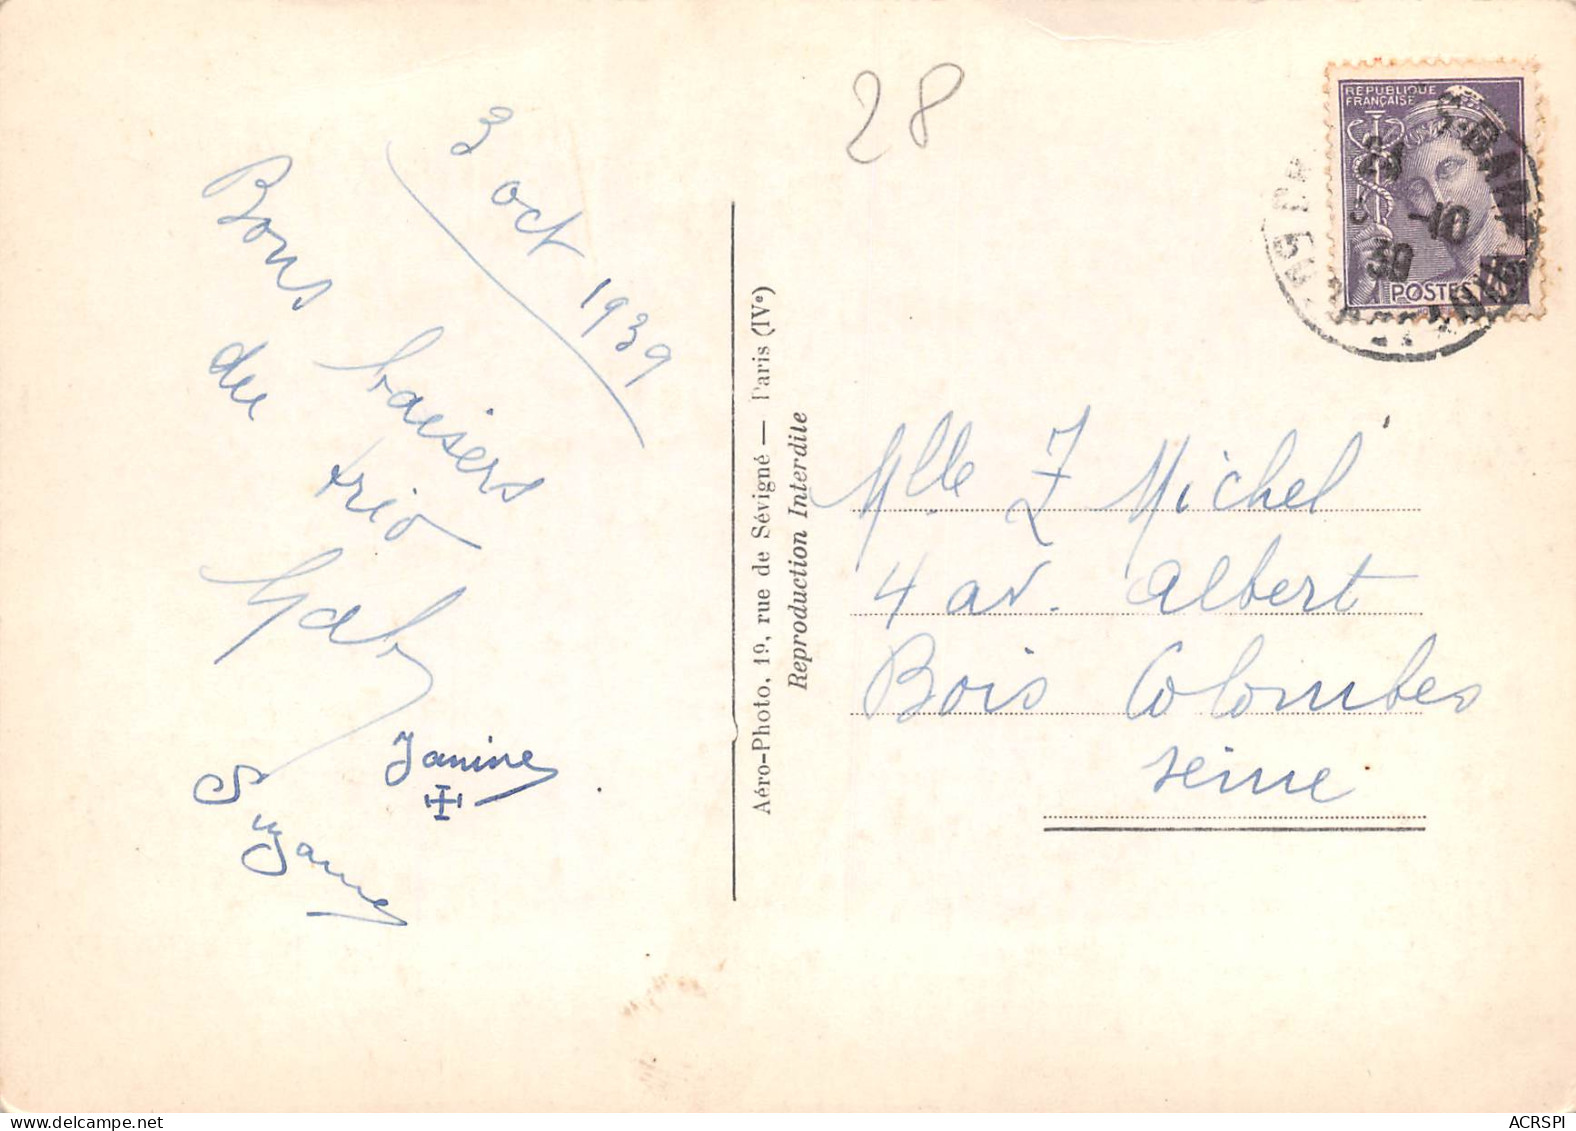 28
RÉPUBLIQUE
FRANÇAISE
POSTES
-10
39
3 oct 1939
Bons baisers
du trio
Gaby
Janine
Suzanne
Aéro-Photo, 19, rue de Sévigné — Paris (IVe)
Reproduction Interdite
Mlle J Michel
4 av. Albert
Bois Colombes
Seine
ACRSPI